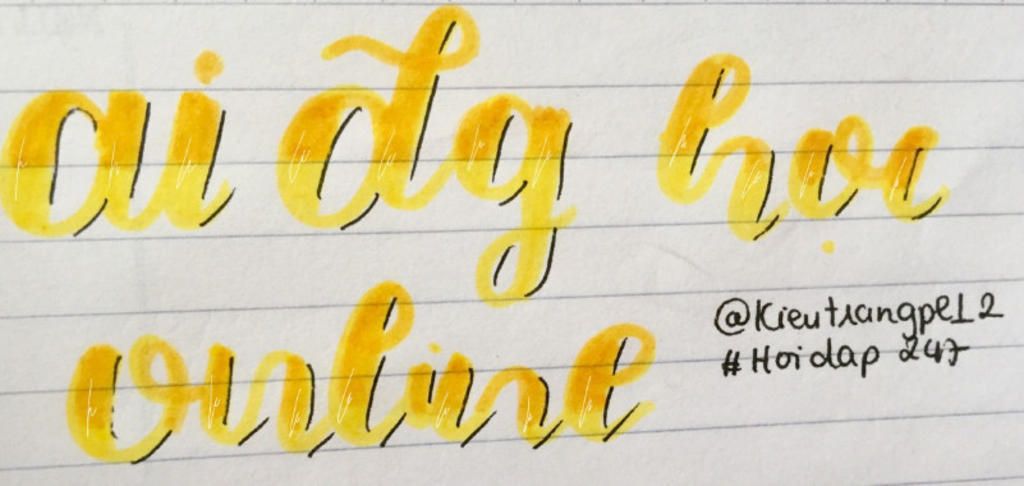 ai đg học
online
@Kieutrangpl12
#Hoidap 247